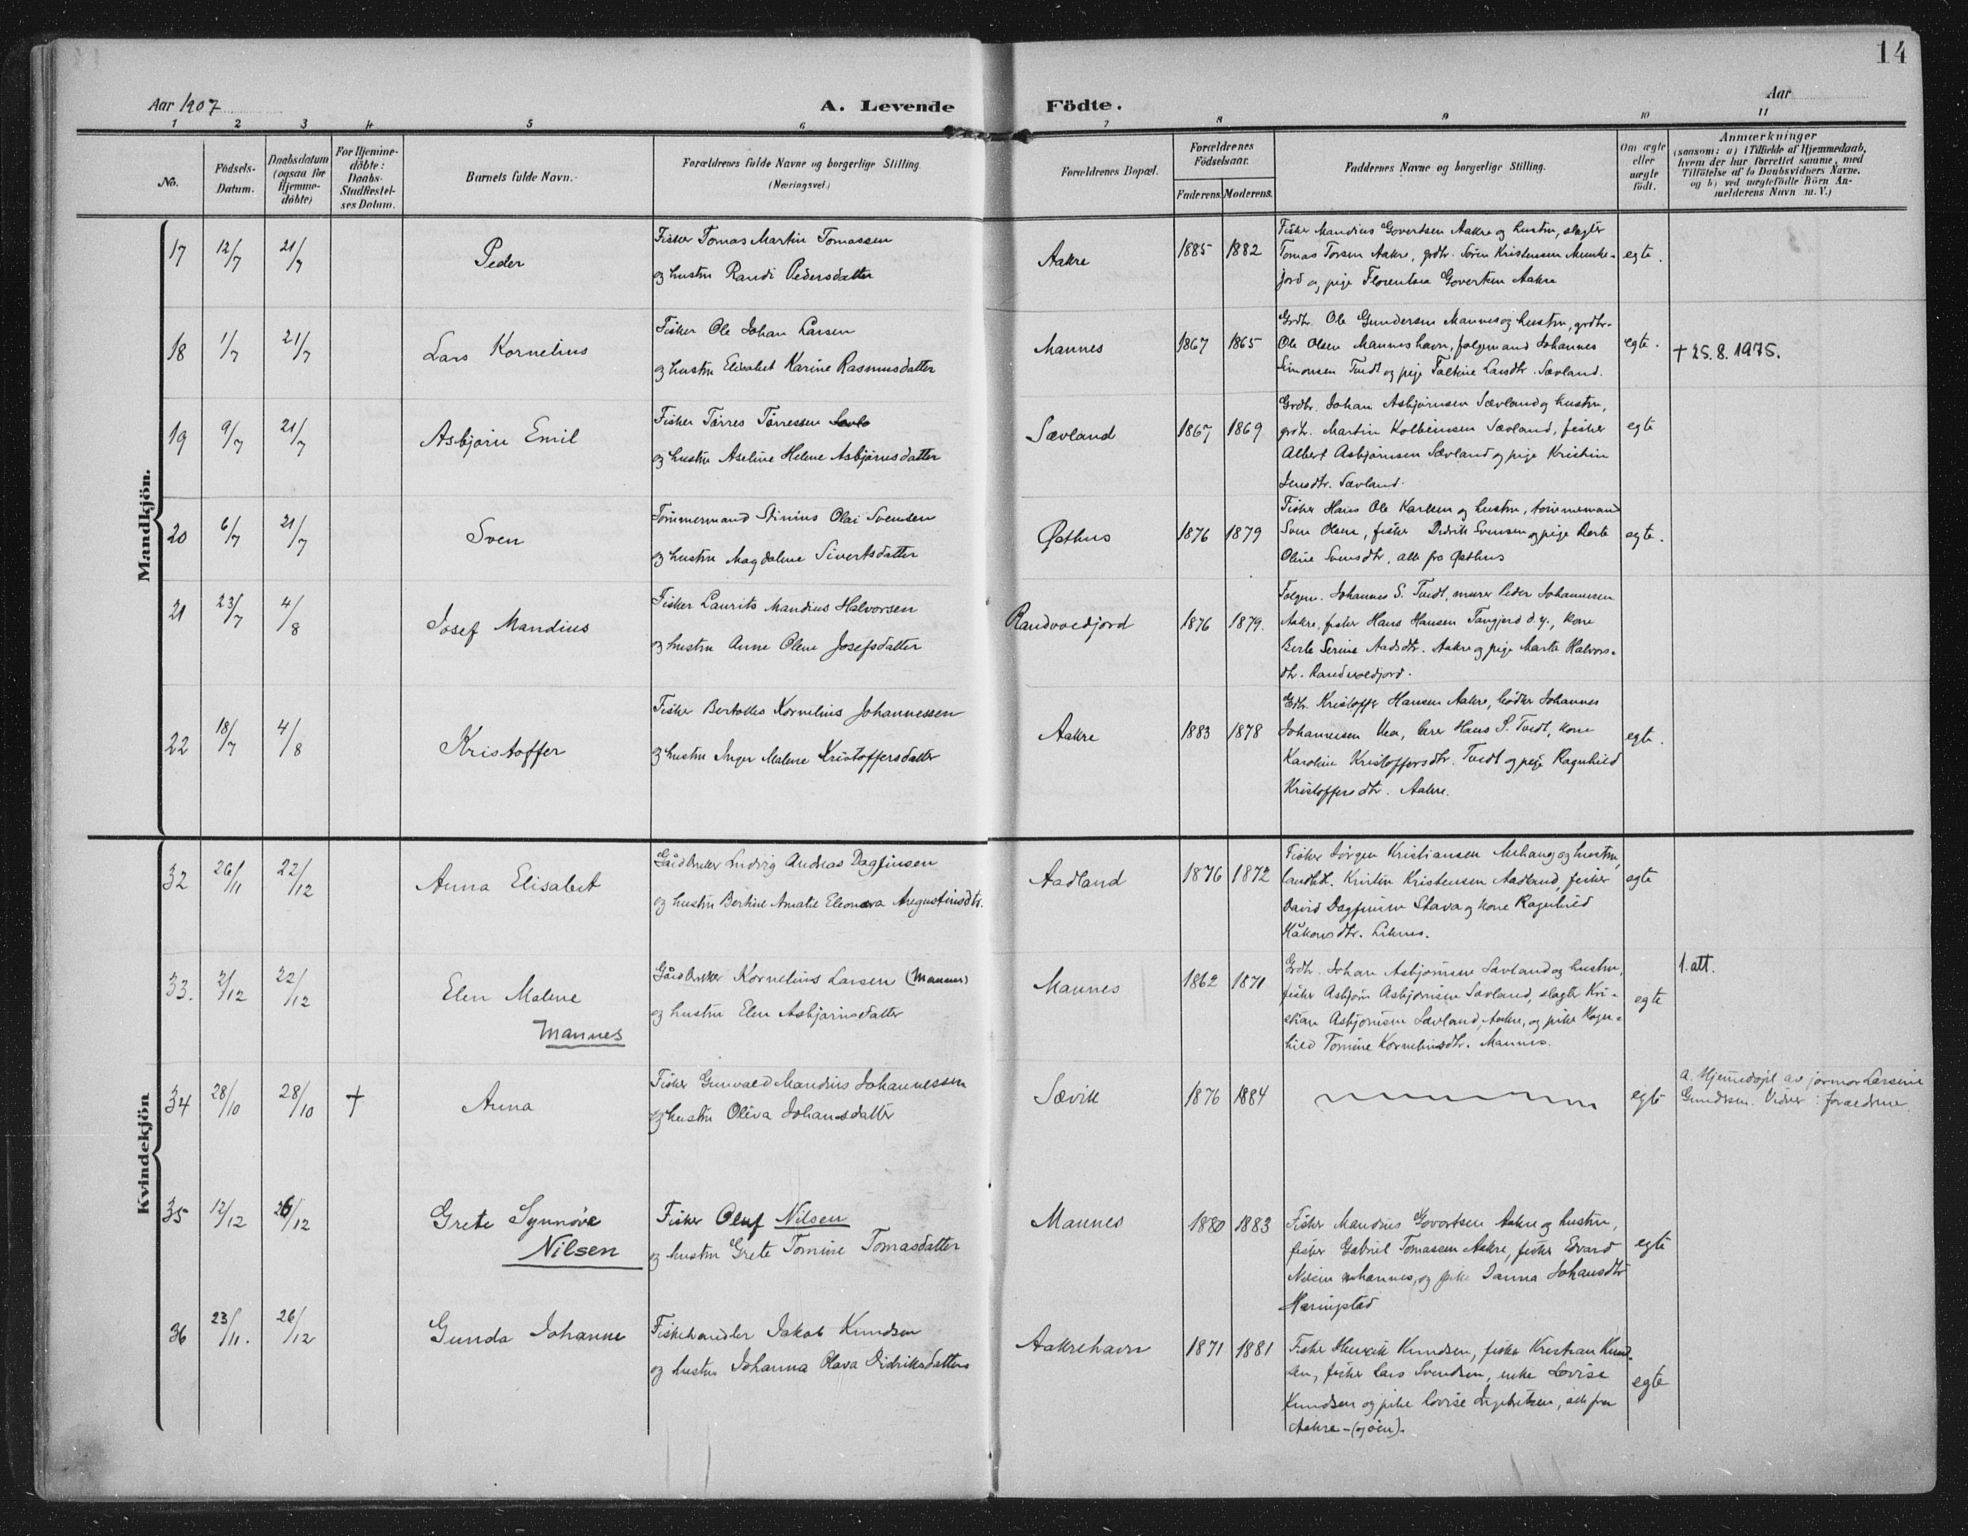 14
Aar 1907
A. Levende
Födte.
Aar
1 2 3 4 5 6 7 8 9 10 11
No.
Födsels-
Datum.
Daabsdatum
(ogsaa for
Hjemme-
döbte)
For Hjemme-
döbte:
Daabs-
Stadfestel-
ses Datum.
Barnets fulde Navn.
Forældrenes fulde Navne og borgerlige Stilling.
(Næringsvei.)
Forældrenes Bopæl.
Forældrenes
Födselsaar.
Faderens.
Moderens.
Faddernes Navne og borgerlige Stilling.
Om ægte
eller
uægte
födt.
Anmærkninger
(saasom: a) i Tilfælde af Hjemmedaab,
hvem der har forrettet samme, med
Tilföielse af to Daabsvidners Navne,
og b) ved uægtefödte Börn An-
melderens Navn m. V.)
Mandkjön.
17 12/7 21/7 Peder
Fisker Tomas Martin Tomassen
og hustru Randi Pedersdatter
Aakre 1885 1882
Fisker Mandius Govertsen Aakre og hustru, slagter
Tomas Torsen Aakre, grdbr. Sören Kristensen Munke-
jord og pige Florentine Govertsen Aakre
egte.
18 1/7 21/7 Lars Kornelius
Fisker Ole Johan Larsen
og hustru Elisabet Karine Rasmusdatter
Mannes 1867 1865
Grdbr. Ole Gundersen Mannes og hustru, grdbr.
Ole Olsen Manneshavn, folgemand Johannes
Simonsen Tvedt og pige Larsdtr. Sævland.
egte.
+ 25.8.1975.
19 9/7 21/7 Asbjørn Emil
Fisker Tørres Tørressen
og hustru Aseline Helene Asbjørnsdatter
Sævland 1867 1869
Grdbr. Johan Asbjørnsen Sævland og hustru,
grdbr. Martin Kolbeinsen Sævland, fisker
Albert Asbjørnsen Sævland og pige Kristin
Jensdtr. Sævland.
egte
20 6/7 21/7 Sven
Tømmermand Stinius Olai Svensen
og hustru Magdalene Sivertsdatter
Østhus 1876 1879
Fisker Hans Ole Karlsen og hustru, tømmermand
Sven Olsen, fisker Didrik Svensen og pige Berte
Oline Svensdtr, alle fra Østhus
egte.
21 23/7 4/8 Josef Mandius
Fisker Laurits Mandius Halvorsen
og hustru Anne Olene Josefsdatter
Randvoedjord 1876 1879.
Folgem. Johannes S. Tvedt, murer Peder Johannesen
Aakre, fisker Hans Hansen Tangjerd d.y., kone
Berte Serine Aadsdtr. Aakre og pige Marta Halvors-
dtr. Randvoedjord.
22 18/7 4/8 Kristoffer
Fisker Kornelius Johannessen
og hustru Inger Malene Kristoffersdatter
Aakre 1883 1878
Gdbr. Kristoffer Hansen Aakre, bødker Johannes
Johannesen Vea, lærer Hans S. Tvedt, kone
Karoline Kristoffersdtr. Tvedt og pige Ragnhild
Kristoffersdtr. Aakre.
egte.
Kvindekjön
32 26/11 22/12 Anna Elisabet
Gårdbruker Ludvig Andreas Dagfinsen
og hustru Bertine Amalie Eleonora Augustinsdtr.
Aadland 1876 1872
Fisker Jørgen Kristiansen og hustru,
Kristensen Aadland, fisker
David Dagfinsen Stava og kone Ragnhild
Håkonsdtr. Liknes.
egte
33. 2/12 22/12 Elen Malene
Mannes
Gårdbruker Kornelius Larsen (Mannes)
og hustru Elen Asbjørnsdatter
Mannes 1862 1871
Grdbr. Johan Asbjørnsen Sævland og hustru,
fisker Asbjørn Asbjørnsen Sævland, slagter Kri-
stian Asbjørnsen Sævland, Aakre, og pike Ragn-
hild Tomine Kornelinsdtr. Mannes.
egte
1. att.
34 28/10 28/10 † Anna
Fisker Gunvald Mandius Johannessen
og hustru Oliva Johansdatter
Sævik 1876 1884
egte
a. Hjemmedøpt av jormor Larsine
Gundersen. Vidner: forældrene
35 12/12 26/12 Grete Synnøve
Nilsen
Fisker Oluf Nilsen
og hustru Grete Tomine Tomasdatter
Mannes 1880 1883
Fisker Mandius Govertsen Aakre og hustru,
fisker Gabriel Tomassen Aakre, fisker Edvard
Nilsen Mannes, og pike Janna Johansdtr
egte
36 23/11. 26/12 Gunda Johanne
Fiskehandler Jakob Knudsen
og hustru Johanna Olava Didriksdatter
Aakrehavn 1871 1881
Fisker Henrik Knudsen, fisker Kristian Knud-
sen, fisker Lars Svendsen, enke Lovise
Knudsen og pike Lovise alle fra
Aakre-(sjøen).
egte